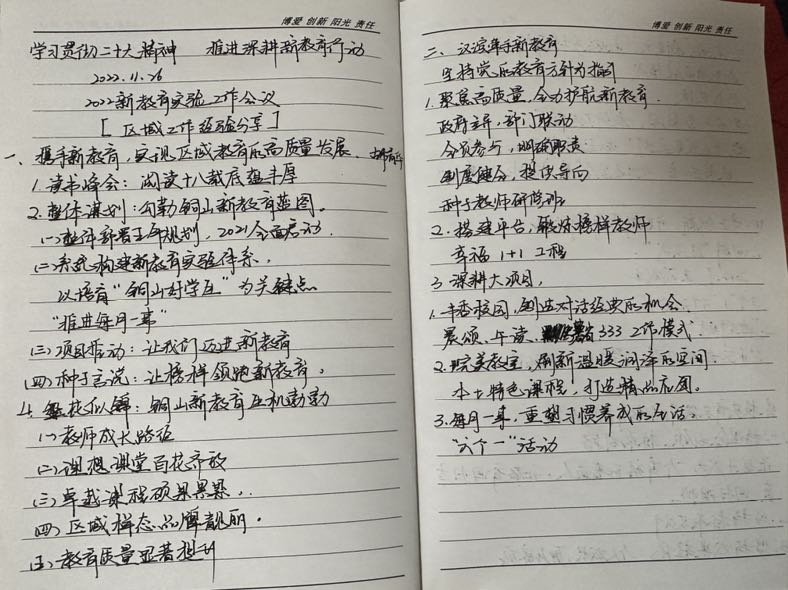 博爱 创新 阳光 责任
学习贯彻二十大精神 推进深耕新教育行动
2022.11.26
2022新教育实验工作会议
[区域工作经验分享]
一、携手新教育,实现区域教育的高质量发展.
1.读书峰会:阅读十八载底蕴丰厚
2.整体谋划:勾勒铜山新教育蓝图。
(一)整体部署五年规划,2021全面启动.
(二)系统构建新教育实验体系,
以培育"铜山好学生"为关键点
"推进每月一事"
(三)项目推动:让我们迈进新教育
(四)种子言说:让榜样领跑新教育。
4. 繁花似锦:铜山新教育生机勃勃
(一)教师成长路径
(二)理想课堂百花齐放
(三)卓越课程硕果累累.
(四)区域样态品牌靓丽。
(五)教育质量显著提升
博爱 创新 阳光 责任
二、汉滨牵手新教育
坚持党的教育方针为指引
1.聚焦高质量,全力护航新教育.
政府主导,部门联动
全员参与,明确职责
制度健全,提供导向
种子教师研修班
2.搭建平台,锻炼榜样教师
幸福1+1工程
3.深耕大项目,
1.书香校园,创造对话经典的机会.
晨颂、午读、333工作模式
2.完美教室,刷新温暖润泽的空间
本土特色课程,打造精品应图。
3.每月一事,重塑习惯养成的生活。
"六个一"活动